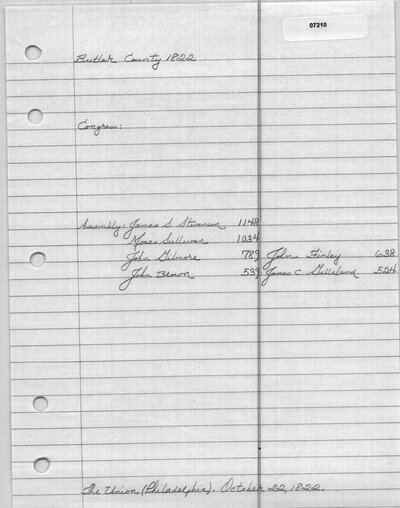 07210
Butler County 1822
Congress:
Assembly: James S. Stevenson 1148
Moses Sullivan 1034
John Gilmore 789 John Finley 638
John Brown 539 James C Gilleland 524
The Union (Philadelphia). October 22, 1822.